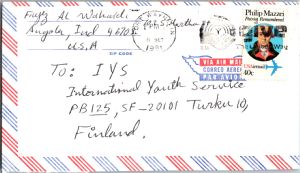 Angola, Ind 46703
U.S.A
ZIP CODE
1981
Philip Mazzei
Patriot Remembered
USAirmail
40c
VIA AIR MAIL
CORREO AEREO
PAR AVION
To: IYS
International Youth Service
PB125, SF-20101 Turku 10,
Finland.